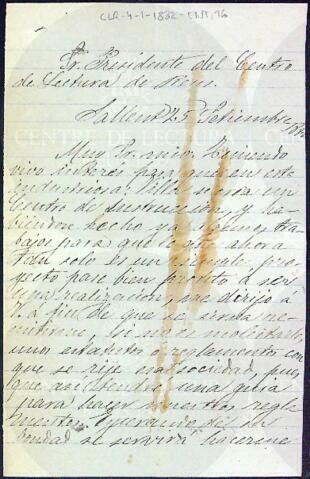 CLR-4-1-1882
Sr. Presidente del Centro
de Lectura de Reus.
Sallent 25 Setiembre
Muy Sr. mio: Teniendo
vivo interes para que en esta
industriosa Villa se cree un
Centro de Instruccion, y ha-
biendo hecho ya algunos tra-
bajos para que lo que ahora
tan solo es un simple pro-
yecto pase bien pronto á ser
una realizacion, me dirijo á
V. á fin de que se sirva re-
mitirme, si no es molestarle,
unos estatutos o reglamentos con
que se rije esa sociedad, pues
que asi tendré una guia
para hacer nuestros regla-
mentos. Esperando de su
bondad se servirá hacerme